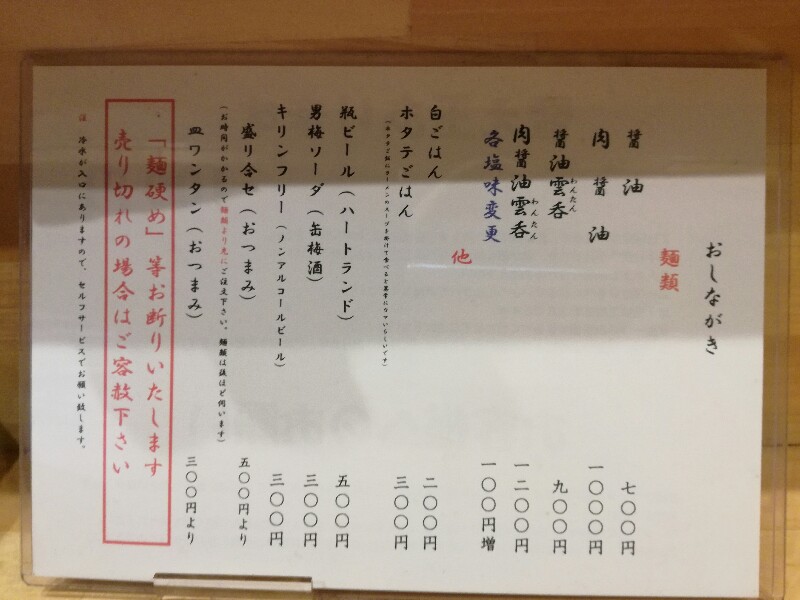 おしながき
麺類
醤油 七〇〇円
肉醤油 一〇〇〇円
醤油雲呑 九〇〇円
わんたん
肉醤油雲呑 一二〇〇円
わんたん
各塩味変更 一〇〇円増
他
白ごはん 二〇〇円
ホタテごはん 三〇〇円
瓶ビール(ハートランド) 五〇〇円
男梅ソーダ(缶梅酒) 三〇〇円
キリンフリー(ノンアルコールビール) 三〇〇円
盛り合せ(おつまみ) 五〇〇円より
(お時間がかかるので麺類より先にご注文下さい。麺類は後ほど伺います)
皿ワンタン(おつまみ) 三〇〇円より
「麺硬め」等お断りいたします
売り切れの場合はご容赦下さい
注 冷水が入口にありますので、セルフサービスでお願い致します。